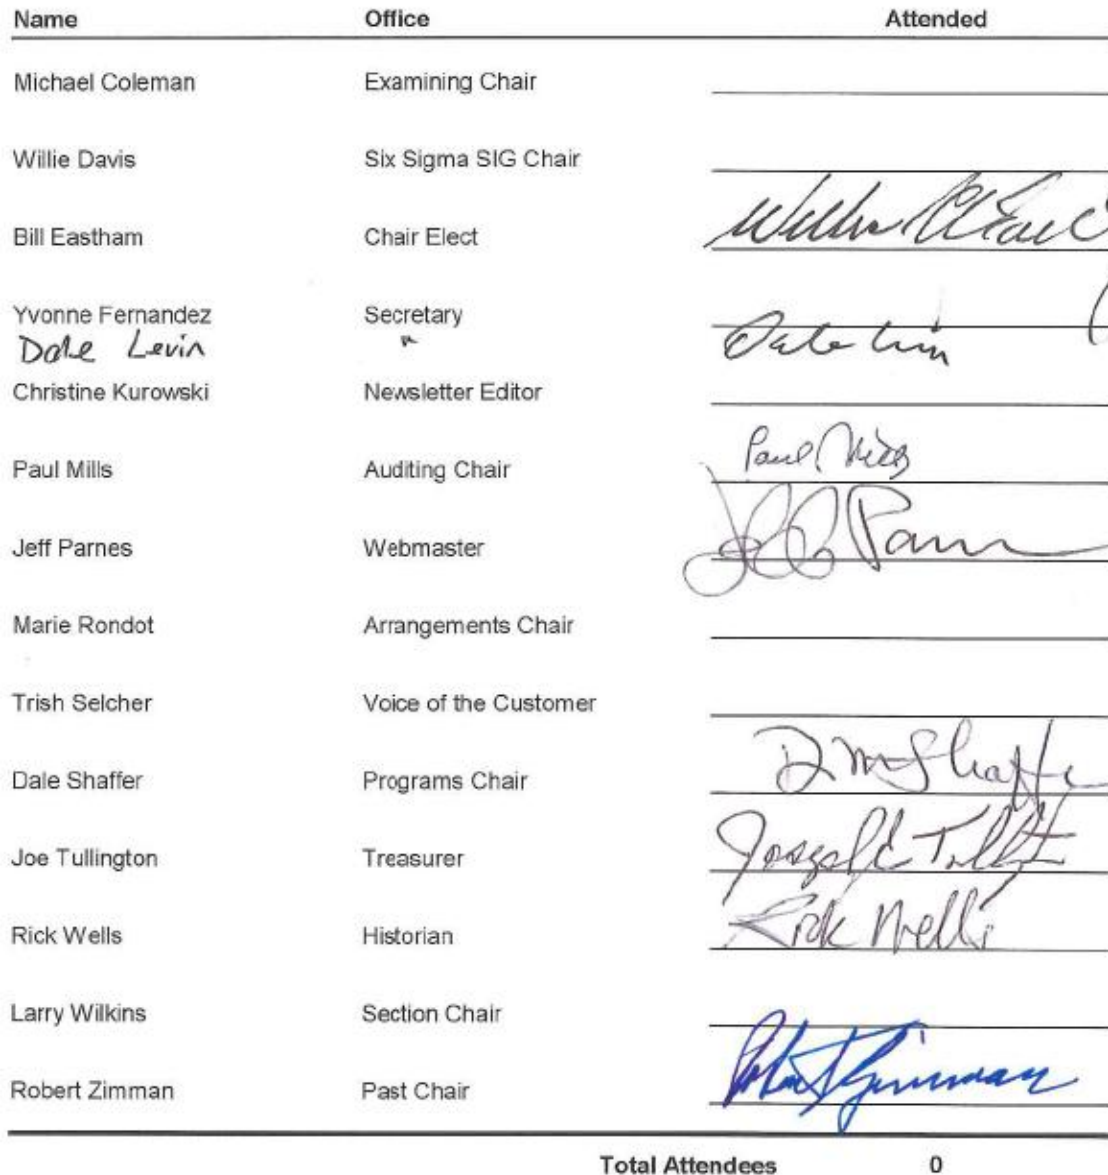 Name Office Attended
Michael Coleman Examining Chair
Willie Davis Six Sigma SIG Chair
Bill Eastham Chair Elect
Yvonne Fernandez Secretary
Dale Levin "
Christine Kurowski Newsletter Editor
Paul Mills Auditing Chair Paul Mills
Jeff Parnes Webmaster Jeff Parn
Marie Rondot Arrangements Chair
Trish Selcher Voice of the Customer
Dale Shaffer Programs Chair D M Shaffe
Joe Tullington Treasurer
Rick Wells Historian Rick Wells
Larry Wilkins Section Chair
Robert Zimman Past Chair
Total Attendees 0